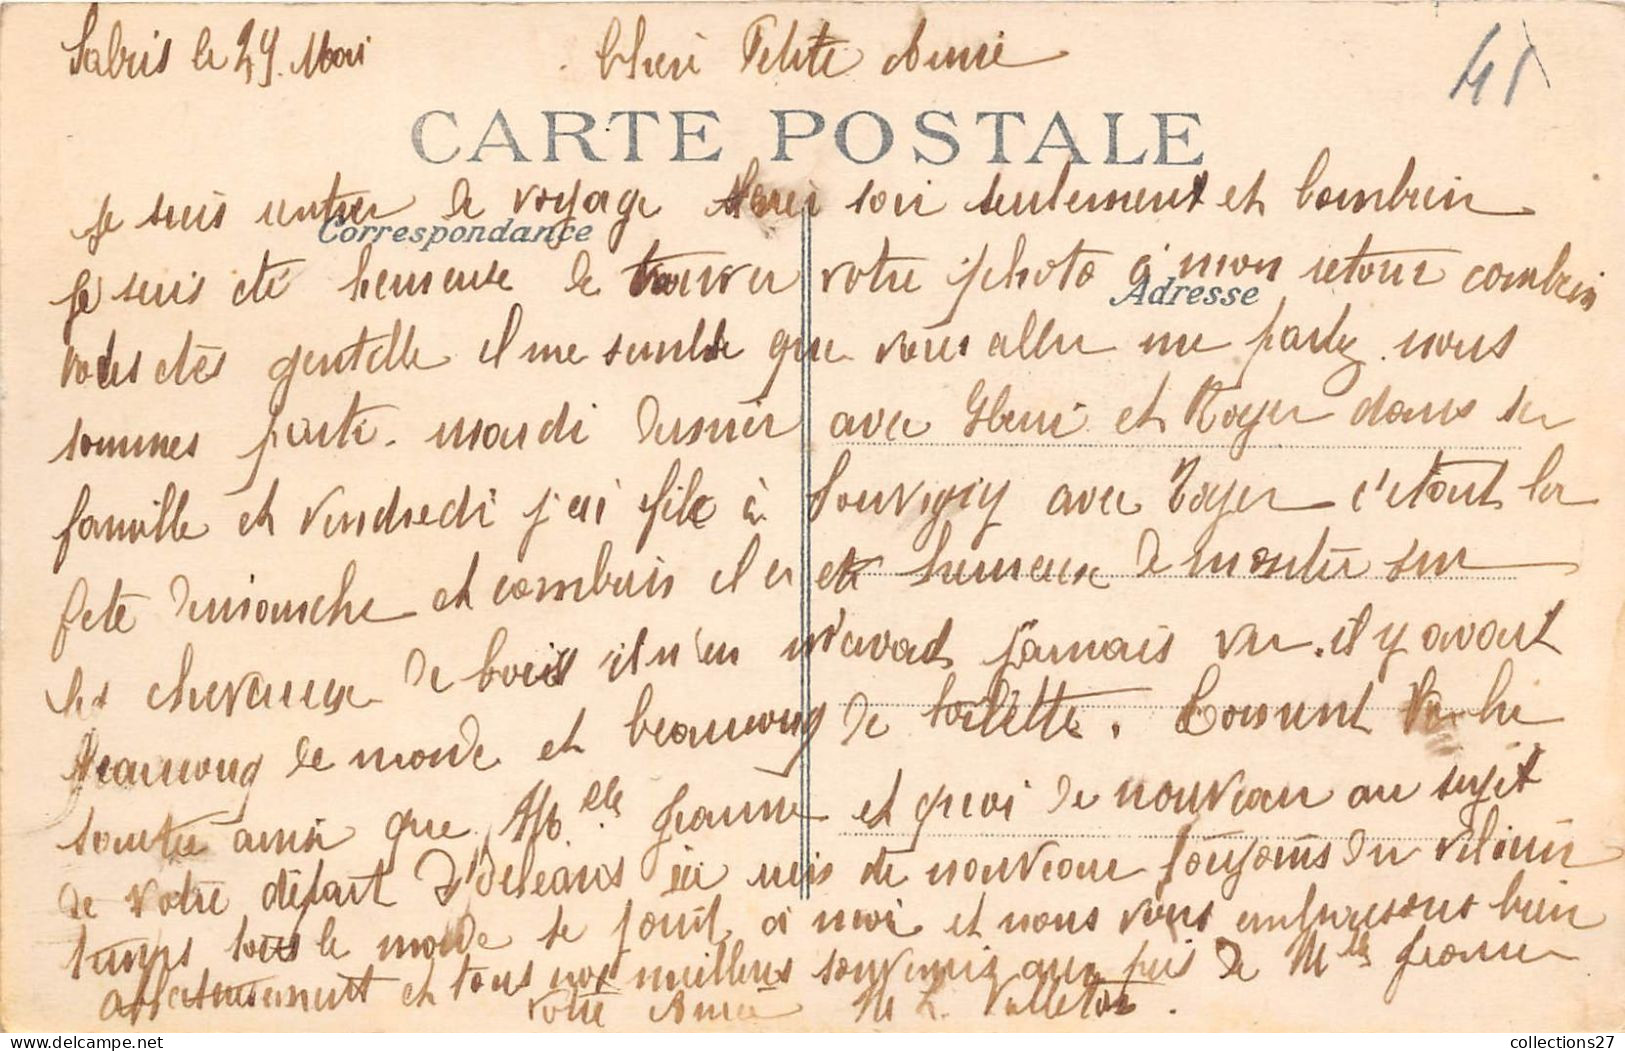 Salbris le 29. Mai
Cheri Petite Amie
41
CARTE POSTALE
Je suis rentrer de voyage soir seulement et combien
Correspondance
Je suis été heureuse de trouver votre photo à mon retour combien
Adresse
vous etes gentille il me semble que vous aller me parlez. nous
sommes partie mardi dernier avec Henri et Roger dans sa
famille et vendredi j'ai filé à Souvigny avec Roger c'etait la
fete dimanche et combien il a eté heureux de monter sur
les chevaux de bois il n'en n'avait jamais vu. il y avait
Beaucoup de monde et beaucoup de toilette. Coment va la
santée ainsi que Mlle Jeanne et quoi de nouveau au sujet
de votre départ d'Orléans ici rien de nouveau toujours du vilain
temps tous le monde se joint à moi et nous vous embrasons bien
affectueusement et tous nos meilleurs souvenirs aux pres de Mlle Jeanne
votre Amie M L. Valleton.
collections27